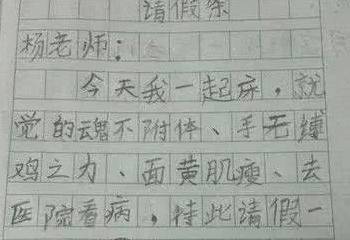 请假条
杨老师：
今天我一起床，就
觉的魂不附体、手无缚
鸡之力、面黄肌瘦、去
医院看病，特此请假一